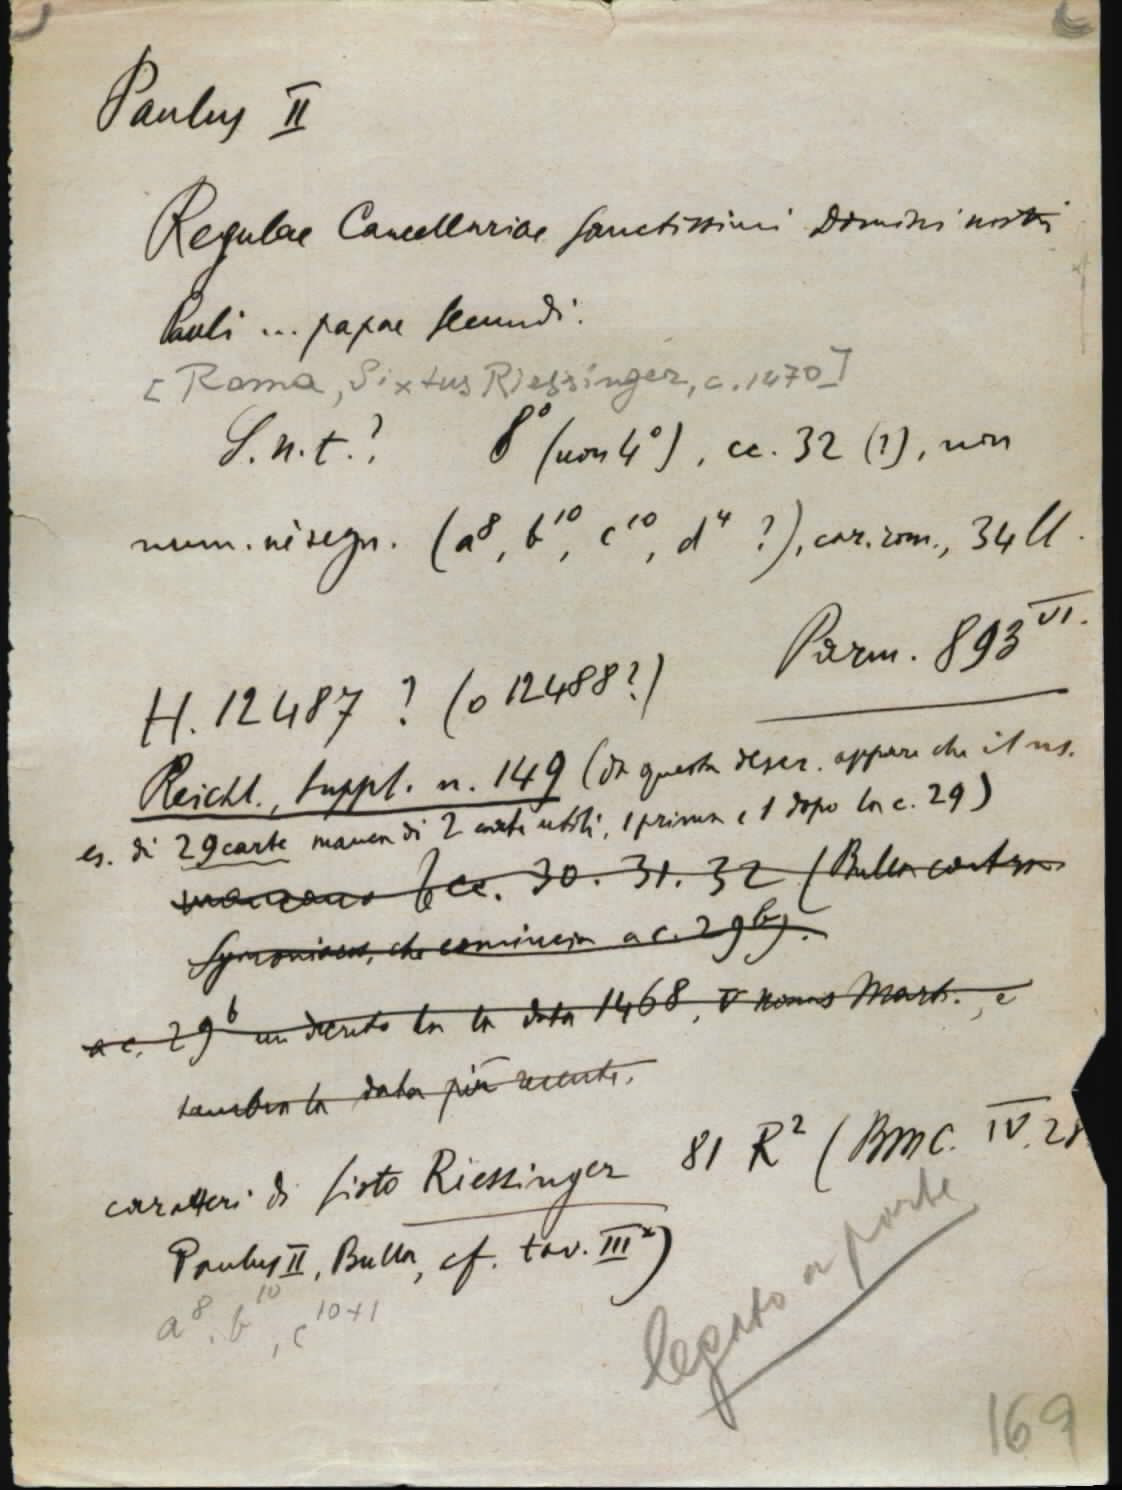 Paulus II
Regulae Cancellariae Sanctissimi Domini nostri
Pauli ... papae Secundi.
[Roma, Sixtus Riessinger, c. 1470]
S.n.t.? 8° (non 4°), cc. 32 (?), non
num. né segn. (a⁸, b¹⁰, c¹⁰, d⁴ ?), car. rom., 34 ll.
Parm. 893 VI.
H. 12487 ? (o 12488?)
Reichl., Suppl. n. 149 (da questa descr. appare che il ns.
es. di 29 carte manca di 2 carte utili, 1 prima e 1 dopo la c. 29)
mancano le cc. 30. 31. 32 (Bulla contra
Symoniacos, che comincia a c. 29b).
a c. 29b un decreto ha la data 1468, V nonas Mart., e
sembra la data più recente.
caratteri di Sisto Riessinger 81 R² (BMC. IV. 28
Paulus II, Bulla, cf. tav. III)
a⁸, b¹⁰, c¹⁰⁺¹
legato a parte
169